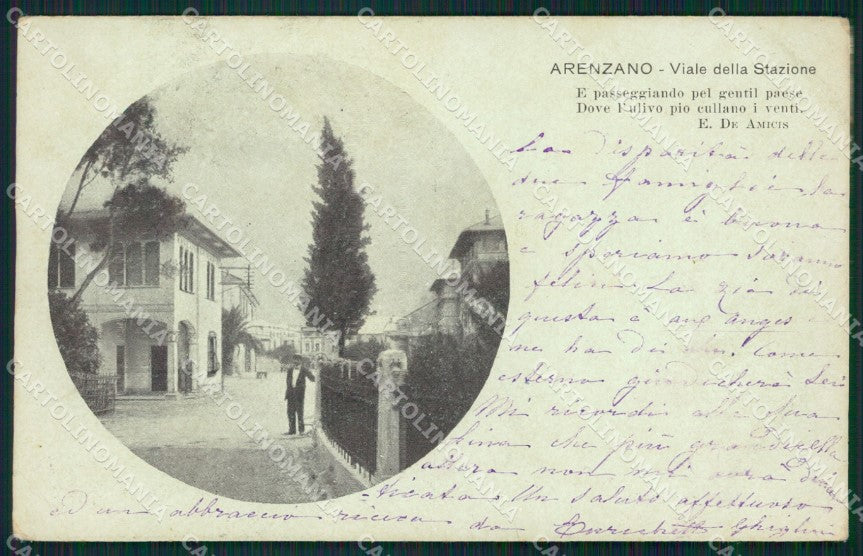 ARENZANO - Viale della Stazione
E passeggiando pel gentil paese
Dove l'ulivo pio cullano i venti.
E. DE AMICIS
La disparità delle
due famiglie la
ragazza è buona
e speriamo saranno
felici. La zia di
questa è
me ha Come
esterno giudicherà Lei
Mi ricordi alla Sua
che più grandicella
allora non mi avrà dimen
ticata. Un saluto affettuoso
ed un abbraccio riceva da
CARTOLINOMANIA